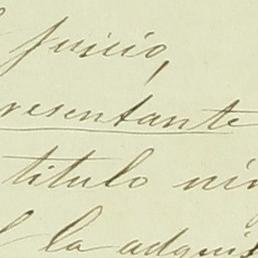 juicio,
resentante
titulo nin
la adquis